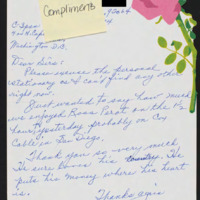 Compliments
C-Span
Washington D.C.
Dear Sirs:
Please excuse the personal
stationary as I can't find any other
right now.
Just wanted to say how much
we enjoyed Ross Perot on the
hour, yesterday probably on Cox
Cable in San Diego.
Thank you so very much.
He sure loves his country. He
puts his money where his heart
is.
Thanks again